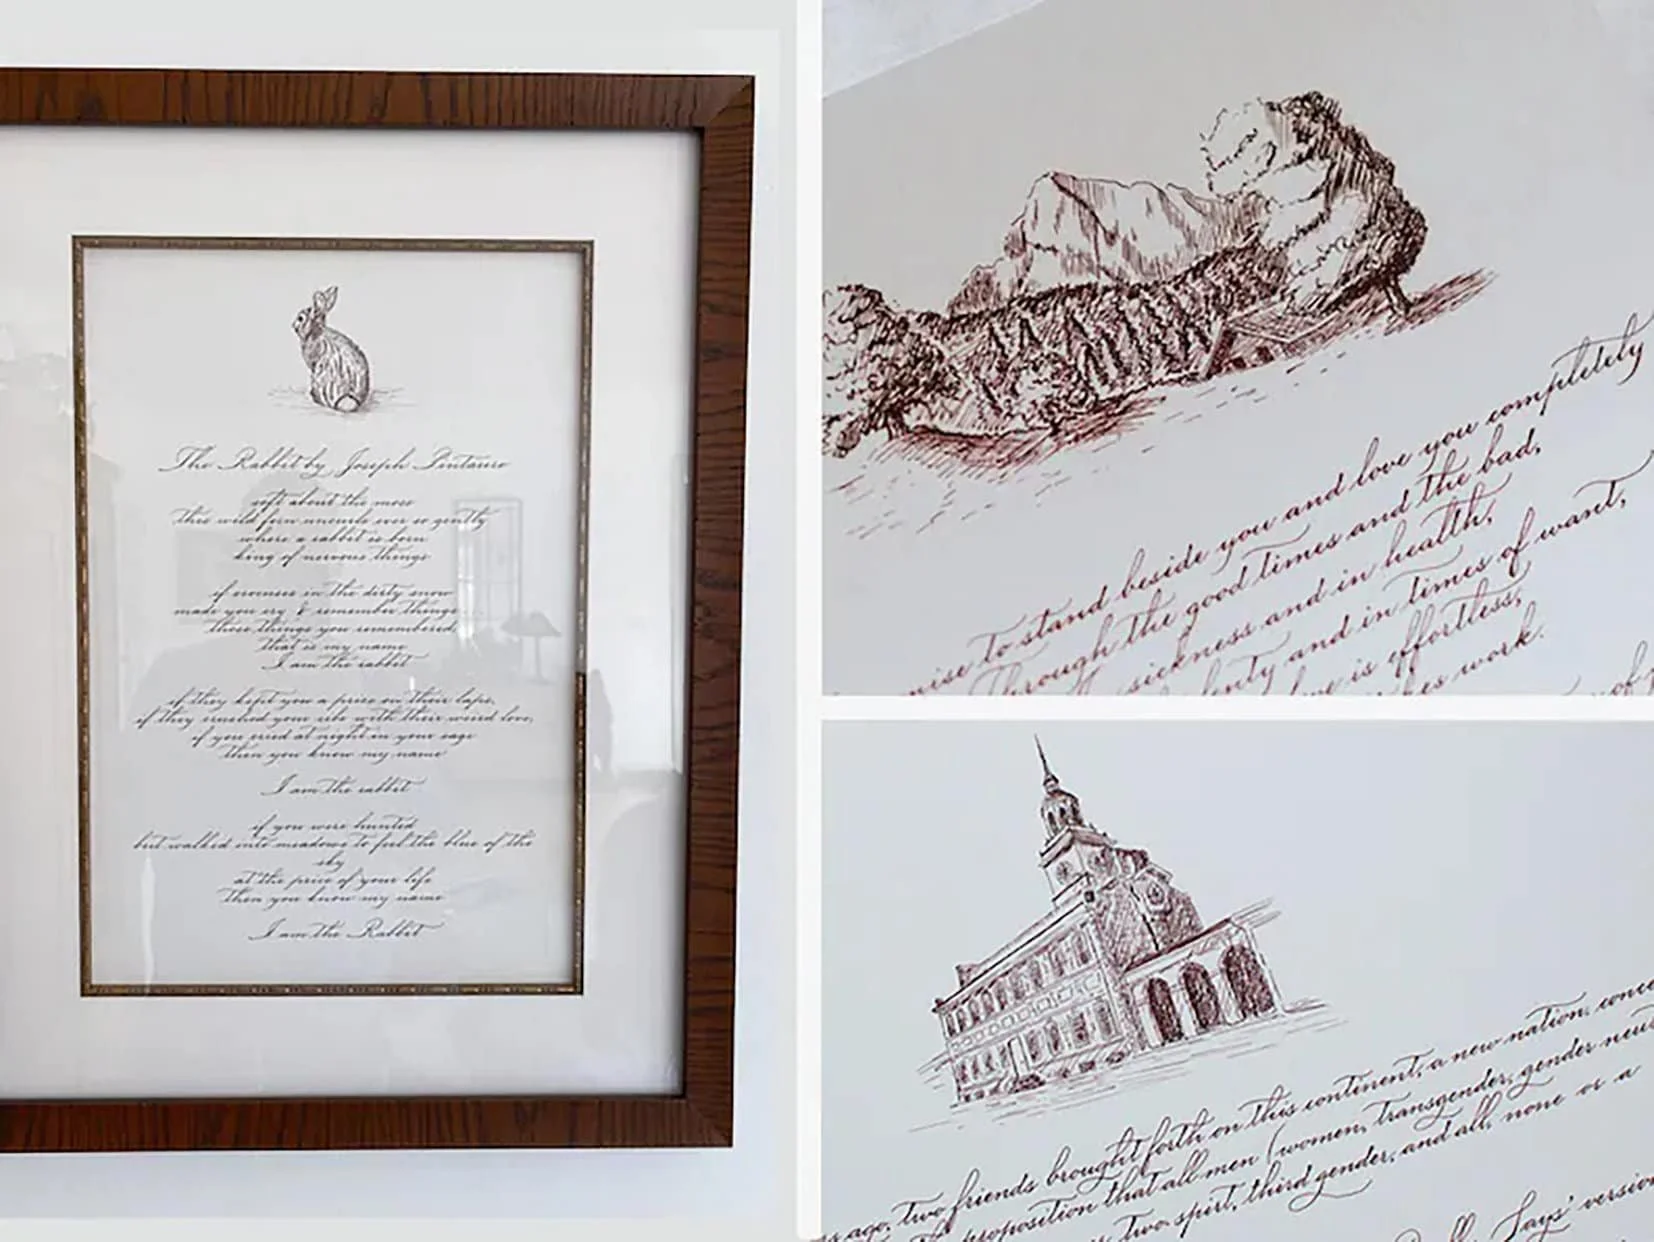 The Rabbit by Joseph Pintauro
soft about the moss
this wild fern uncurls ever so gently
where a rabbit is born
king of nervous things
if crocuses in the dirty snow
made you cry & remember things
those things you remembered,
that is my name
I am the rabbit
if they kept you a price on their laps,
if they crushed your ribs with their weird love,
if you cried at night in your cage
then you know my name
I am the rabbit
if you were hunted
but walked into meadows to feel the blue of the
sky
at the price of your life
then you know my name
I am the Rabbit
mise to stand beside you and love you completely
Through the good times and the bad,
sickness and in health,
lenty and in times of want,
ve is effortless,
es work.
of
ago, two friends brought forth on this continent, a new nation, conce
proposition that all men (women, transgender, gender neut
two spirt, third gender, and all, none or a
Says' version